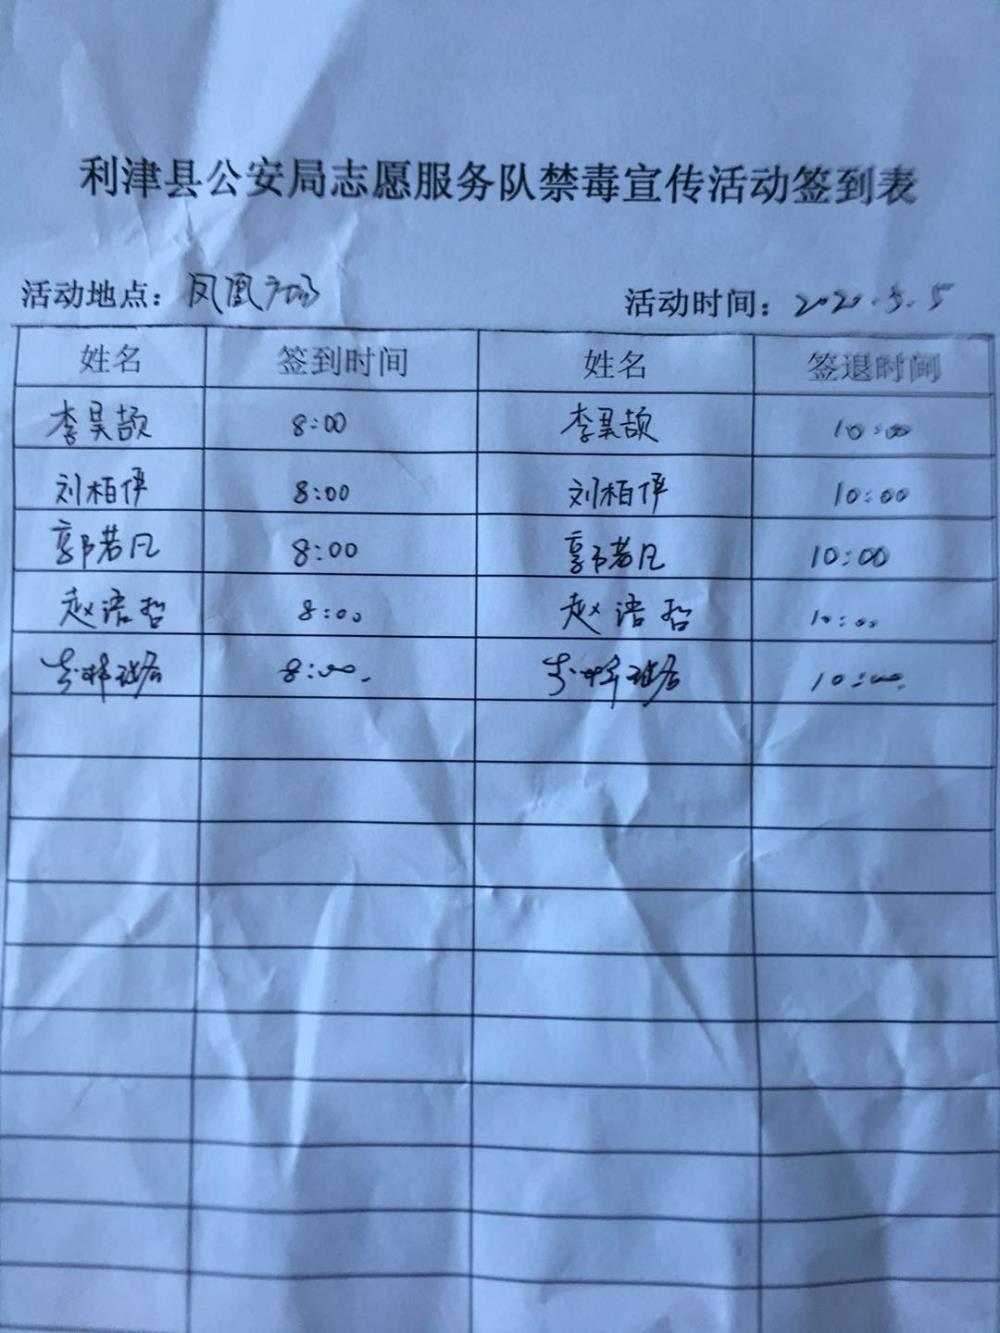 利津县公安局志愿服务队禁毒宣传活动签到表
活动地点：凤凰广场 活动时间：2020.5.5
姓名 签到时间 姓名 签退时间
李昊颉 8:00 李昊颉 10:00
刘栢伊 8:00 刘栢伊 10:00
郭若凡 8:00 郭若凡 10:00
赵浩哲 8:00 赵浩哲 10:00
8:00. 10:00.